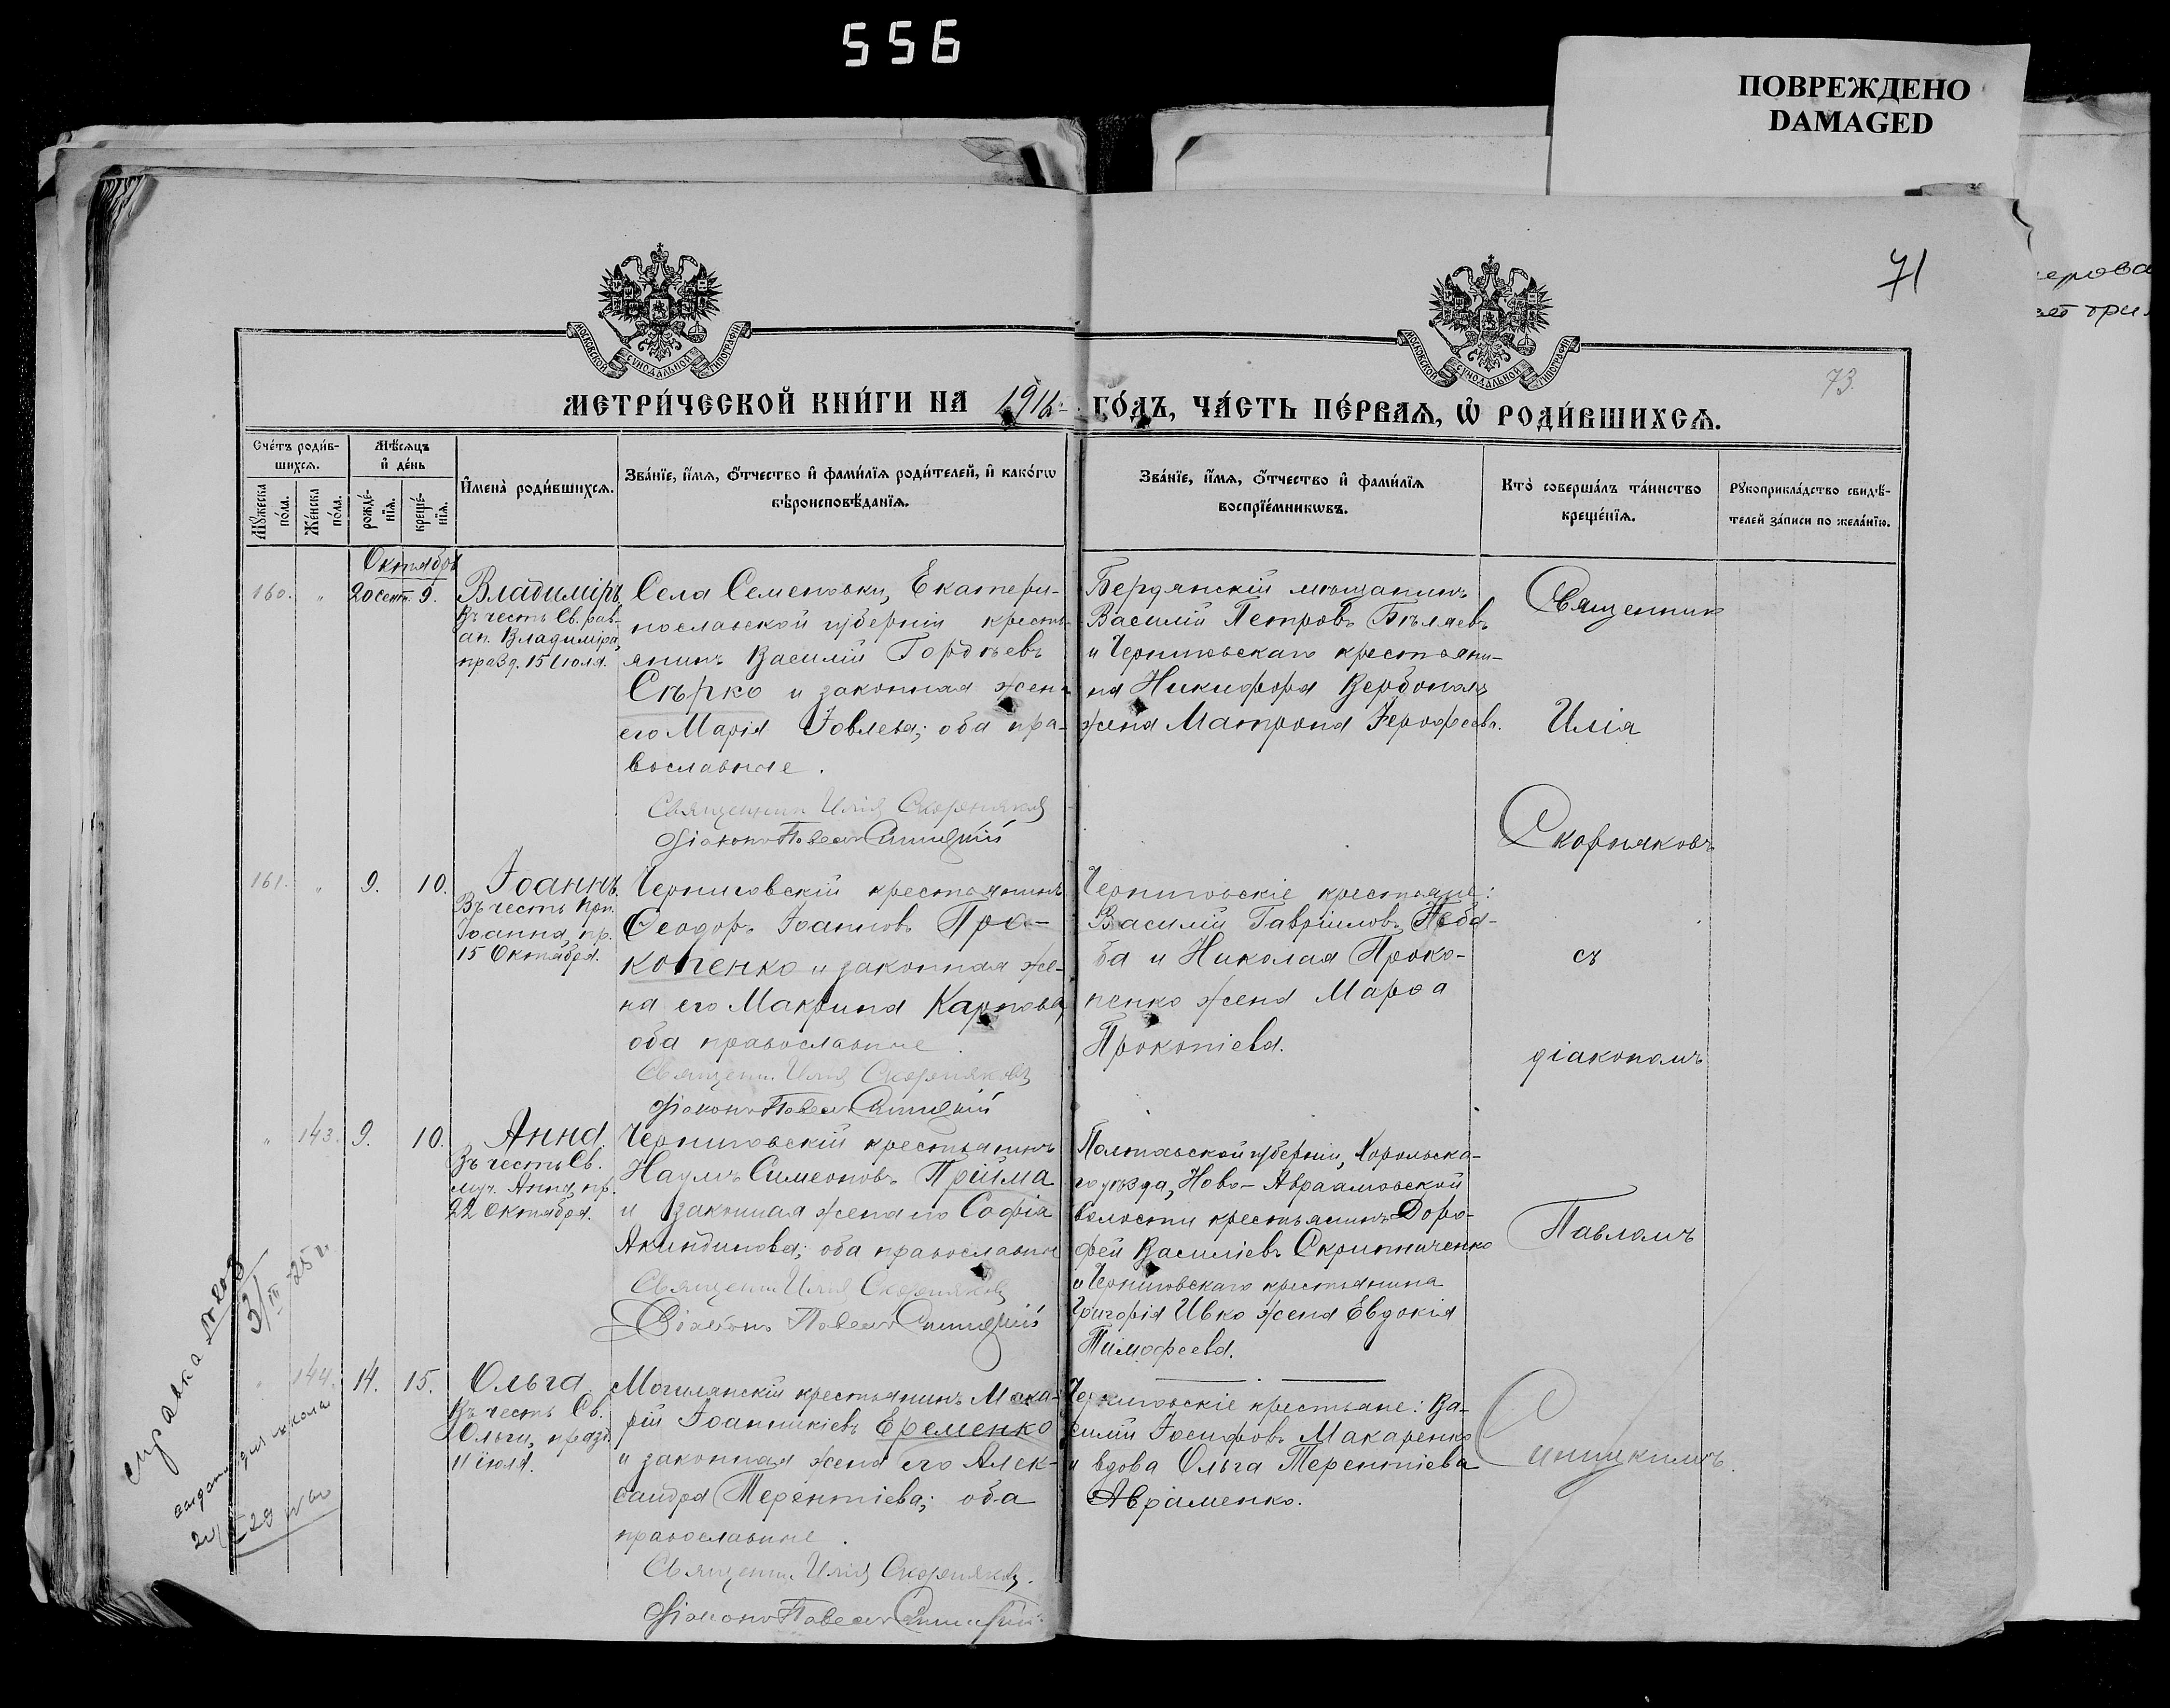 556
ПОВРЕЖДЕНО
DAMAGED
71
73.
МОСКОВСКОЙ СУНОДАЛЬНОЙ ТИПОГРАФІИ
МОСКОВСКОЙ СУНОДАЛЬНОЙ ТИПОГРАФІИ
МЕТРИ́ЧЕСКОЙ КНИ́ГИ НА 1916 ГО́ДЪ, ЧА́СТЬ ПЕ́РВАЯ, Ѡ҆ РОДИ́ВШИХСѦ.
Сче́тъ роди́в-
шихсѧ.
Мꙋжеска
по́ла.
Же́нска
по́ла.
Мѣ́сѧцъ
и҆ де́нь
рожде́-
нїѧ.
креще́-
нїѧ.
И҆мена̀ роди́вшихсѧ.
Зва́нїе, и҆́мѧ, ѻ҆́тчество и҆ фами́лїѧ роди́телей, и҆ како́гѡ
вѣроисповѣ́данїѧ.
Зва́нїе, и҆́мѧ, ѻ҆́тчество и҆ фами́лїѧ
воспрїе́мникѡвъ.
Кто̀ соверша́лъ та́инство
креще́нїѧ.
Рꙋкоприкла́дство свидѣ́-
телей за́писи по жела́нїю.
Октябрь
160. " 20 сент. 9.
Владиміръ
Въ честь Св. рав-
ап. Владиміра,
празд. 15 Іюля.
Села Семеновки, Екатери-
нославской губерніи кресть-
янинъ Василій Гордѣевъ
Сѣрко и законная жена
его Марія Іовлева; оба пра-
вославные.
Священникъ Илія Скорняковъ
Діаконъ Павелъ Синицкій
Бердянскій мѣщанинъ
Василій Петровъ Бѣляевъ
и Черниговскаго крестьяни-
на Никифора Вербоналъ
жена Матрона Іерофеева.
Священникъ
Илія
Скорняковъ
съ
діакономъ
Павломъ
Синицкимъ.
161. " 9. 10.
Іоаннъ
Въ честь Прп.
Іоанна, пр.
15 Октября.
Черниговскій крестьянинъ
Ѳеодоръ Іоанновъ Про-
копенко и законная же-
на его Макрина Карпова,
оба православные.
Священн. Илія Скорняковъ
Діаконъ Павелъ Синицкій
Черниговскіе крестьяне:
Василій Гавріиловъ Неба-
ба и Николая Проко-
пенко жена Марѳа
Прокопіева.
" 143. 9. 10.
Анна.
Въ честь Св.
муч. Анны, пр.
22 Октября.
Черниговскій крестьянинъ
Наумъ Симеоновъ Прійма
и законная жена его Софія
Акиндинова; оба православные
Священн. Илія Скорняковъ
Діаконъ Павелъ Синицкій
Полтавской губерніи, Хорольска-
го уѣзда, Ново-Авраамовской
волости крестьянинъ Доро-
фей Василіевъ Скрипниченко
и Черниговскаго крестьянина
Григорія Ивко жена Евдокія
Тимофеева.
" 144. 14. 15.
Ольга
Въ честь Св.
Ольги, празд.
11 іюля.
Могилянскій крестьянинъ Мака-
рій Іоанникіевъ Еременко
и законная жена его Алек-
сандра Терентіева; оба
православные.
Священн. Илія Скорняковъ.
Діаконъ Павелъ Синицкій
Черниговскіе крестьяне: Ва-
силій Іосифовъ Макаренко
и вдова Ольга Терентіева
Авраменко.
справка № 203
3/III 25 г.
выдана для школы